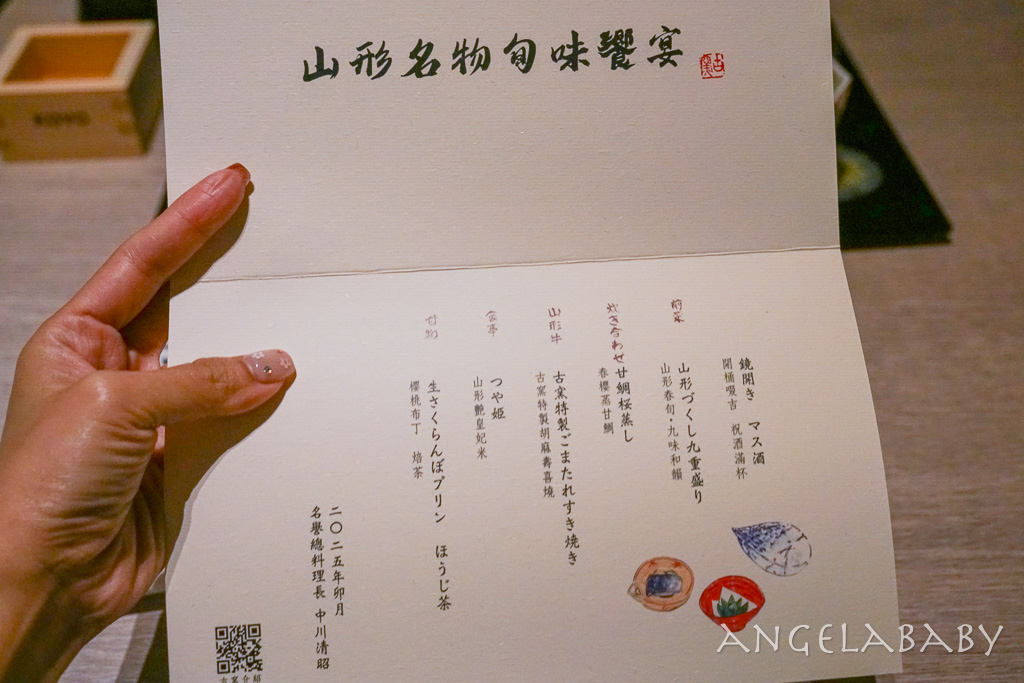 山形名物旬味饗宴
鏡開き マス酒
開桶啜吉 祝酒滿杯
前菜
山形づくし九重盛り
山形春旬・九味和韻
炊き合わせ
甘鯛桜蒸し
春櫻蒸甘鯛
山形牛
古窯特製ごまたれすき焼き
古窯特製胡麻壽喜燒
食事
つや姫
山形艷皇妃米
甘物
生さくらんぼプリン ほうじ茶
櫻桃布丁 焙茶
二〇二五年卯月
名譽總料理長 中川清昭
ANGELABABY